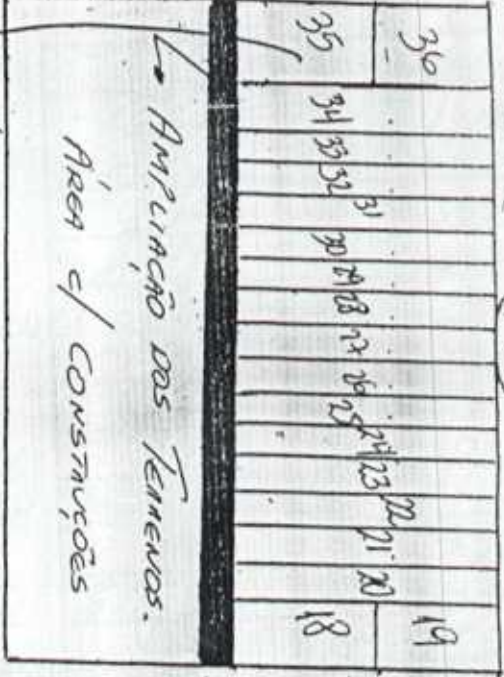 36
35 34 33 32 31 30 29 28 27 26 25 24 23 22 21 20 18
19
AMPLIAÇÃO DOS TERRENOS.
ÁREA c/ CONSTRUÇÕES